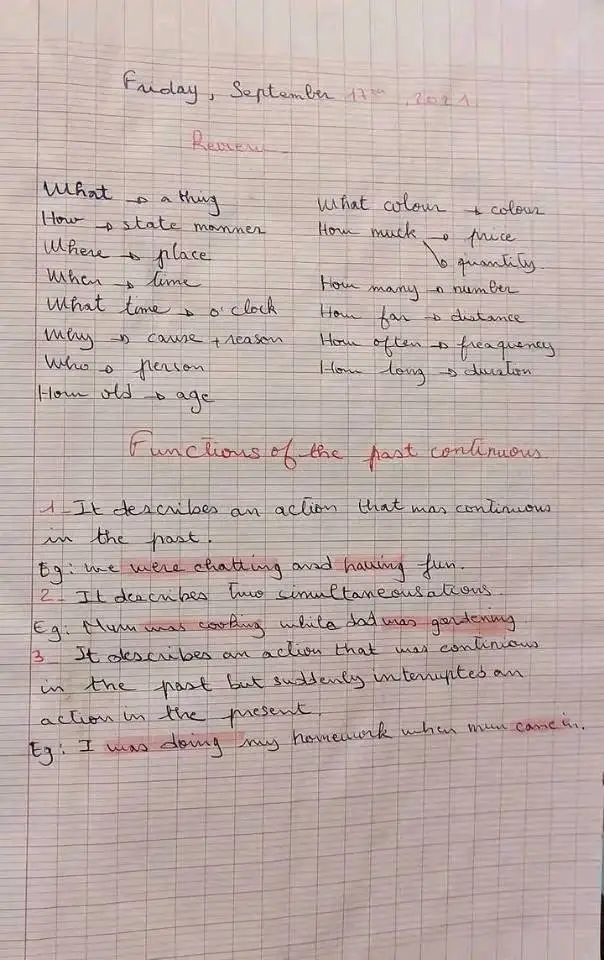 Friday, September 17th, 2021
Review
What → a thing
How → state manner
Where → place
When → time
What time → o'clock
Why → cause + reason
Who → person
How old → age
What colour → colour
How much → price
→ quantity
How many → number
How far → distance
How often → freaquency
How long → duration
Functions of the past continuous
1_ It describes an action that was continuous
in the past.
Eg: we were chatting and having fun.
2_ It describes two simultaneous ations
Eg: Mum was cooking while dad was gardening
3_ It describes an action that was continious
in the past but suddenly interrupted an
action in the present.
Eg: I was doing my homework when mum came in.